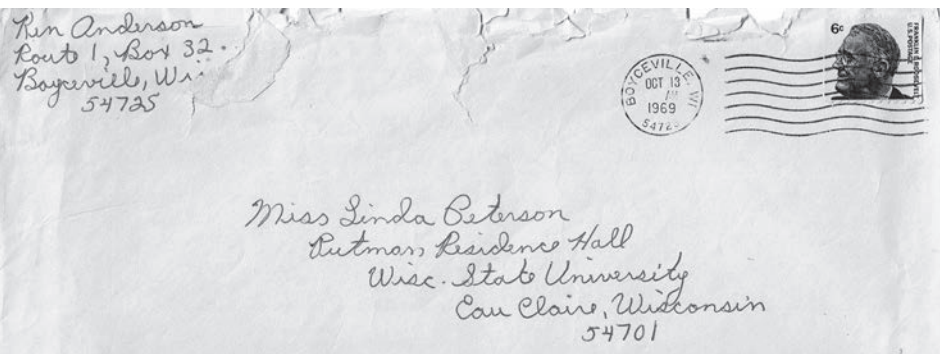 Ken Anderson
Route 1, Box 32.
Boyceville, Wis
54725
BOYCEVILLE, WI
OCT 13
1969
5472
6c
FRANKLIN D. ROOSEVELT
U.S. POSTAGE
Miss Linda Peterson
Putman Residence Hall
Wisc. State University
Eau Claire, Wisconsin
54701